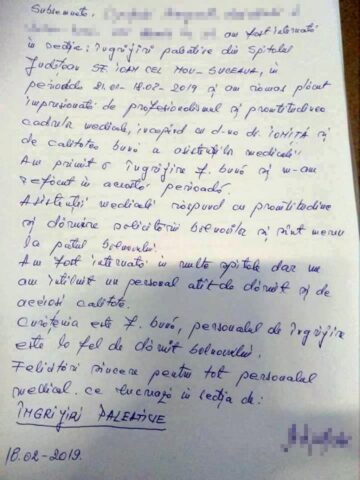 Subsemnata,
am fost internată
în secția: îngrijiri paliative din Spitalul
Județean SF. IOAN CEL NOU-SUCEAVA, în
perioada 21.01-18.02-2019 și am rămas plăcut
impresionată de profesionalismul și promtitudinea
cadrelor medicale, începînd cu d-na dr. IONIȚĂ și
de calitatea bună a asistenților medicali.
Am primit o îngrijire f. bună și m-am
refăcut în această perioadă.
Asistenții medicali răspund cu promtitudine
și dăruire solicitării bolnavilor și sînt mereu
la patul bolnavului.
Am fost internată în multe spitale dar nu
am întîlnit un personal atît de dăruit și de
aceiași calitate.
Curățenia este f. bună, personalul de îngrijire
este la fel de dăruit bolnavului.
Felicitări sincere pentru tot personalul
medical ce lucrează în secția de:
ÎNGRIJIRI PALEATIVE
18.02-2019.